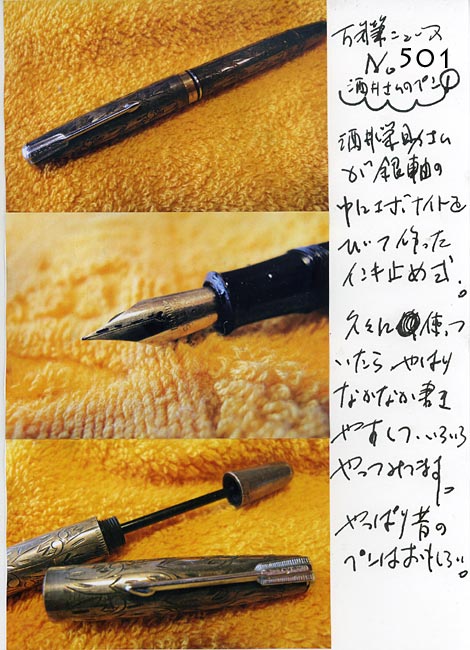 万年筆ニュース
No.501
酒井さんのペン①
酒井栄助さん
が銀軸の
中にエボナイトを
ひいて作った
インキ止め式。
久々に使っ
いたら やはり
なかなか書き
やすくて、いろいろ
やってみてます。
やっぱり昔の
ペンはおもしろい。